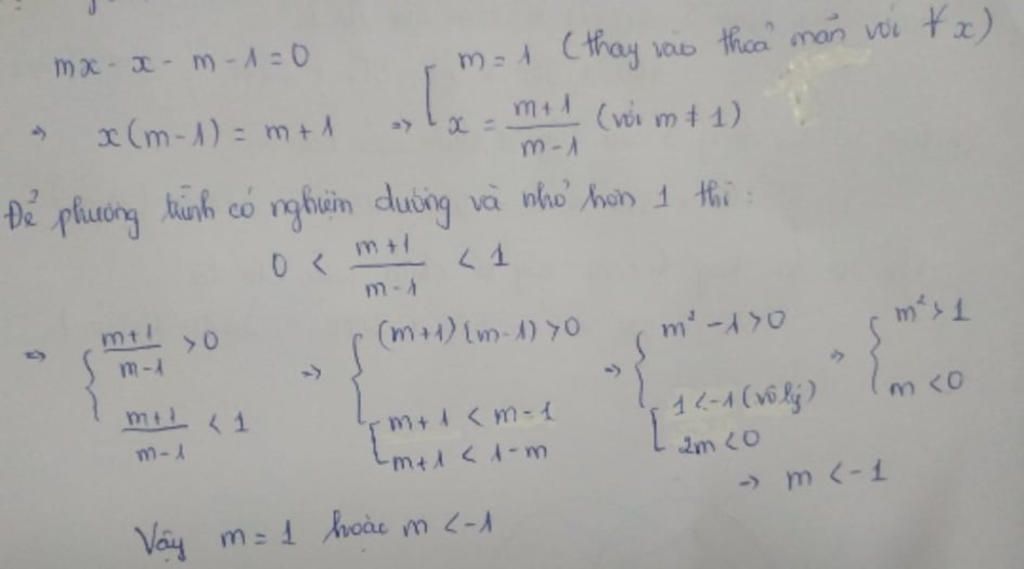 mx - x - m - 1 = 0
=> x(m - 1) = m + 1 => [ m = 1 (thay vào thoả mãn với ∀x)
x = (m+1)/(m-1) (với m ≠ 1)
Để phương trình có nghiệm dương và nhỏ hơn 1 thì:
0 < (m+1)/(m-1) < 1
=> { (m+1)/(m-1) > 0 => { (m+1)(m-1) > 0 => { m² - 1 > 0 => { m² > 1
(m+1)/(m-1) < 1 [ m + 1 < m - 1 [ 1 < -1 (vô lý) m < 0
m + 1 < 1 - m 2m < 0
-> m < -1
Vậy m = 1 hoặc m < -1